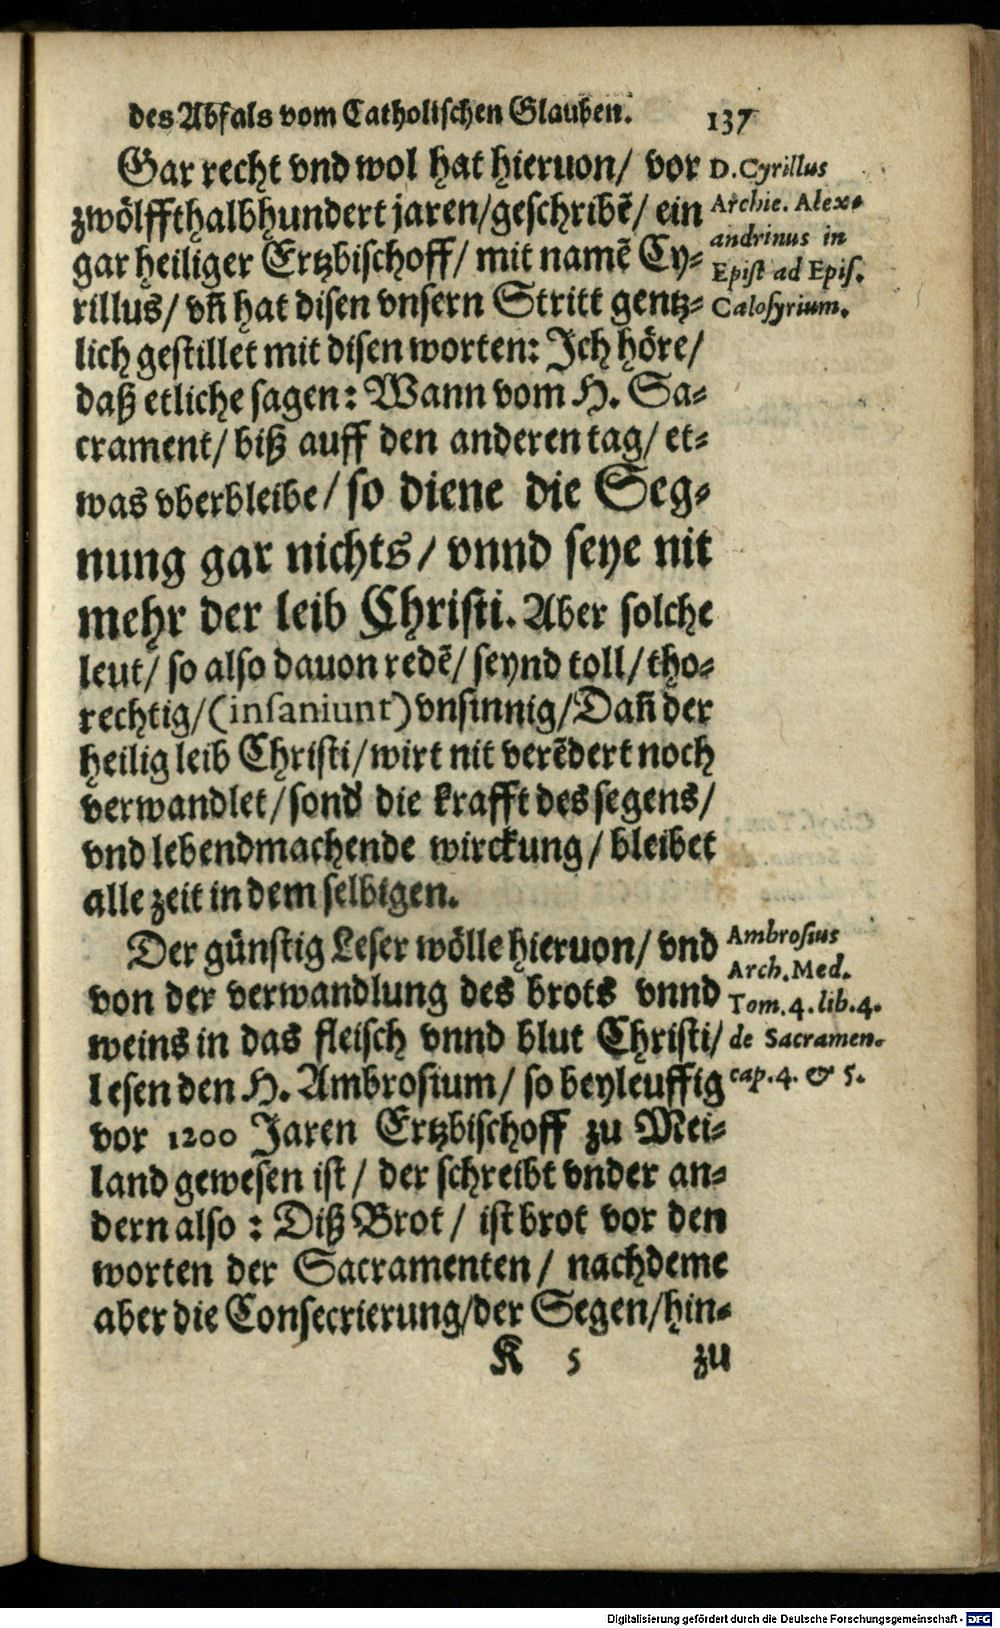 des Abfals vom Catholischen Glauben. 137
Gar recht vnd wol hat hieruon/ vor
zwölffthalbhundert jaren/geschribē/ ein
gar heiliger Ertzbischoff/ mit namē Cy⸗
rillus/ vn̄ hat disen vnsern Stritt gentz⸗
lich gestillet mit disen worten: Jch höre/
daß etliche sagen: Wann vom H. Sa⸗
crament/ biß auff den anderen tag/ et⸗
was vberbleibe/ so diene die Seg⸗
nung gar nichts/ vnnd seye nit
mehr der leib Christi. Aber solche
leut/ so also dauon redē/ seynd toll/ tho⸗
rechtig/ (insaniunt) vnsinnig/ Dan̄ der
heilig leib Christi/ wirt nit verēdert noch
verwandlet/ sond' die krafft des segens/
vnd lebendmachende wirckung/ bleibet
alle zeit in dem selbigen.
D. Cyrillus
Archie. Alex⸗
andrinus in
Epist ad Epis.
Calosyrium.
Der günstig Leser wölle hieruon/ vnd
von der verwandlung des brots vnnd
weins in das fleisch vnnd blut Christi/
lesen den H. Ambrosium/ so beyleuffig
vor 1200 Jaren Ertzbischoff zu Mei⸗
land gewesen ist/ der schreibt vnder an⸗
dern also: Diß Brot/ ist brot vor den
worten der Sacramenten/ nachdeme
aber die Consecrierung/der Segen/hin⸗
Ambrosius
Arch. Med.
Tom. 4. lib. 4.
de Sacramen.
cap. 4. & 5.
K 5 zu
Digitalisierung gefördert durch die Deutsche Forschungsgemeinschaft - DFG